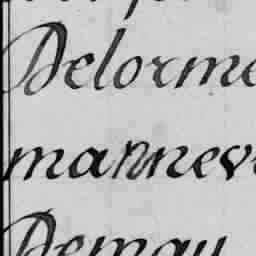 Delorme
mannev
Demau